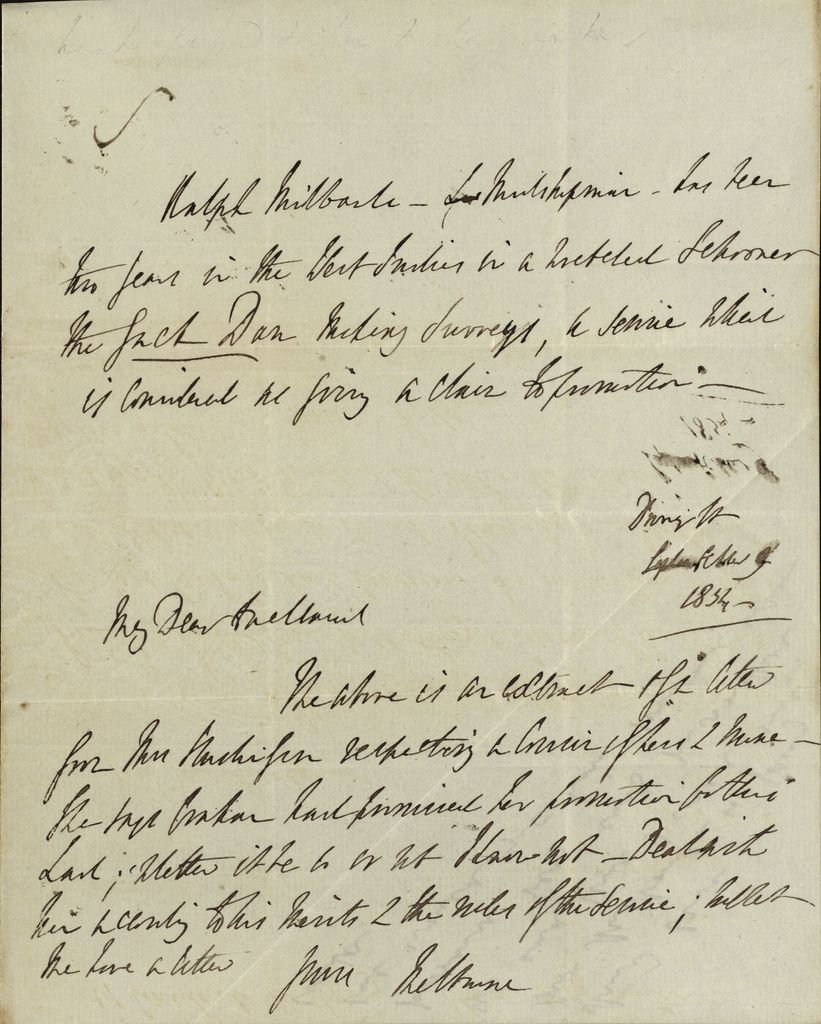 Ralph Milbank – Midshipman – has been
two years in the West Indies in a wretched Schooner
the Jack Daw making Surveys, a service which
is considered as giving a claim to promotion –
Downing St
September 9
1834
My Dear Auckland
The above is an extract of a letter
from Mrs respecting a Cousin of hers & mine –
She says Graham had promised her promotion for this
Lad; whether it be so or not I know not – Deal with
him according to his merits & the rules of the Service; but let
me have a letter
Yours Melbourne